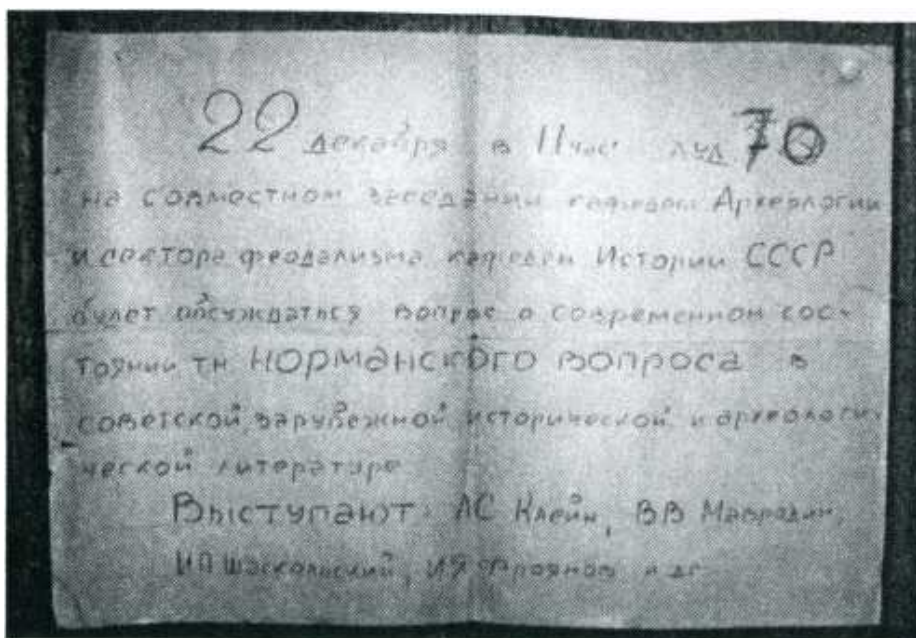 22 декабря в 11 час ауд 70
на совместном заседании кафедры Археологии
и сектора феодализма кафедры Истории СССР
будет обсуждаться вопрос о современном сос-
тоянии тн НОРМАНСКОГО ВОПРОСА в
советской, зарубежной исторической и археологи-
ческой литературе
Выступают: ЛС Клейн, ВВ Мавродин,
ИП Шаскольский, ИЯ Фроянов и др